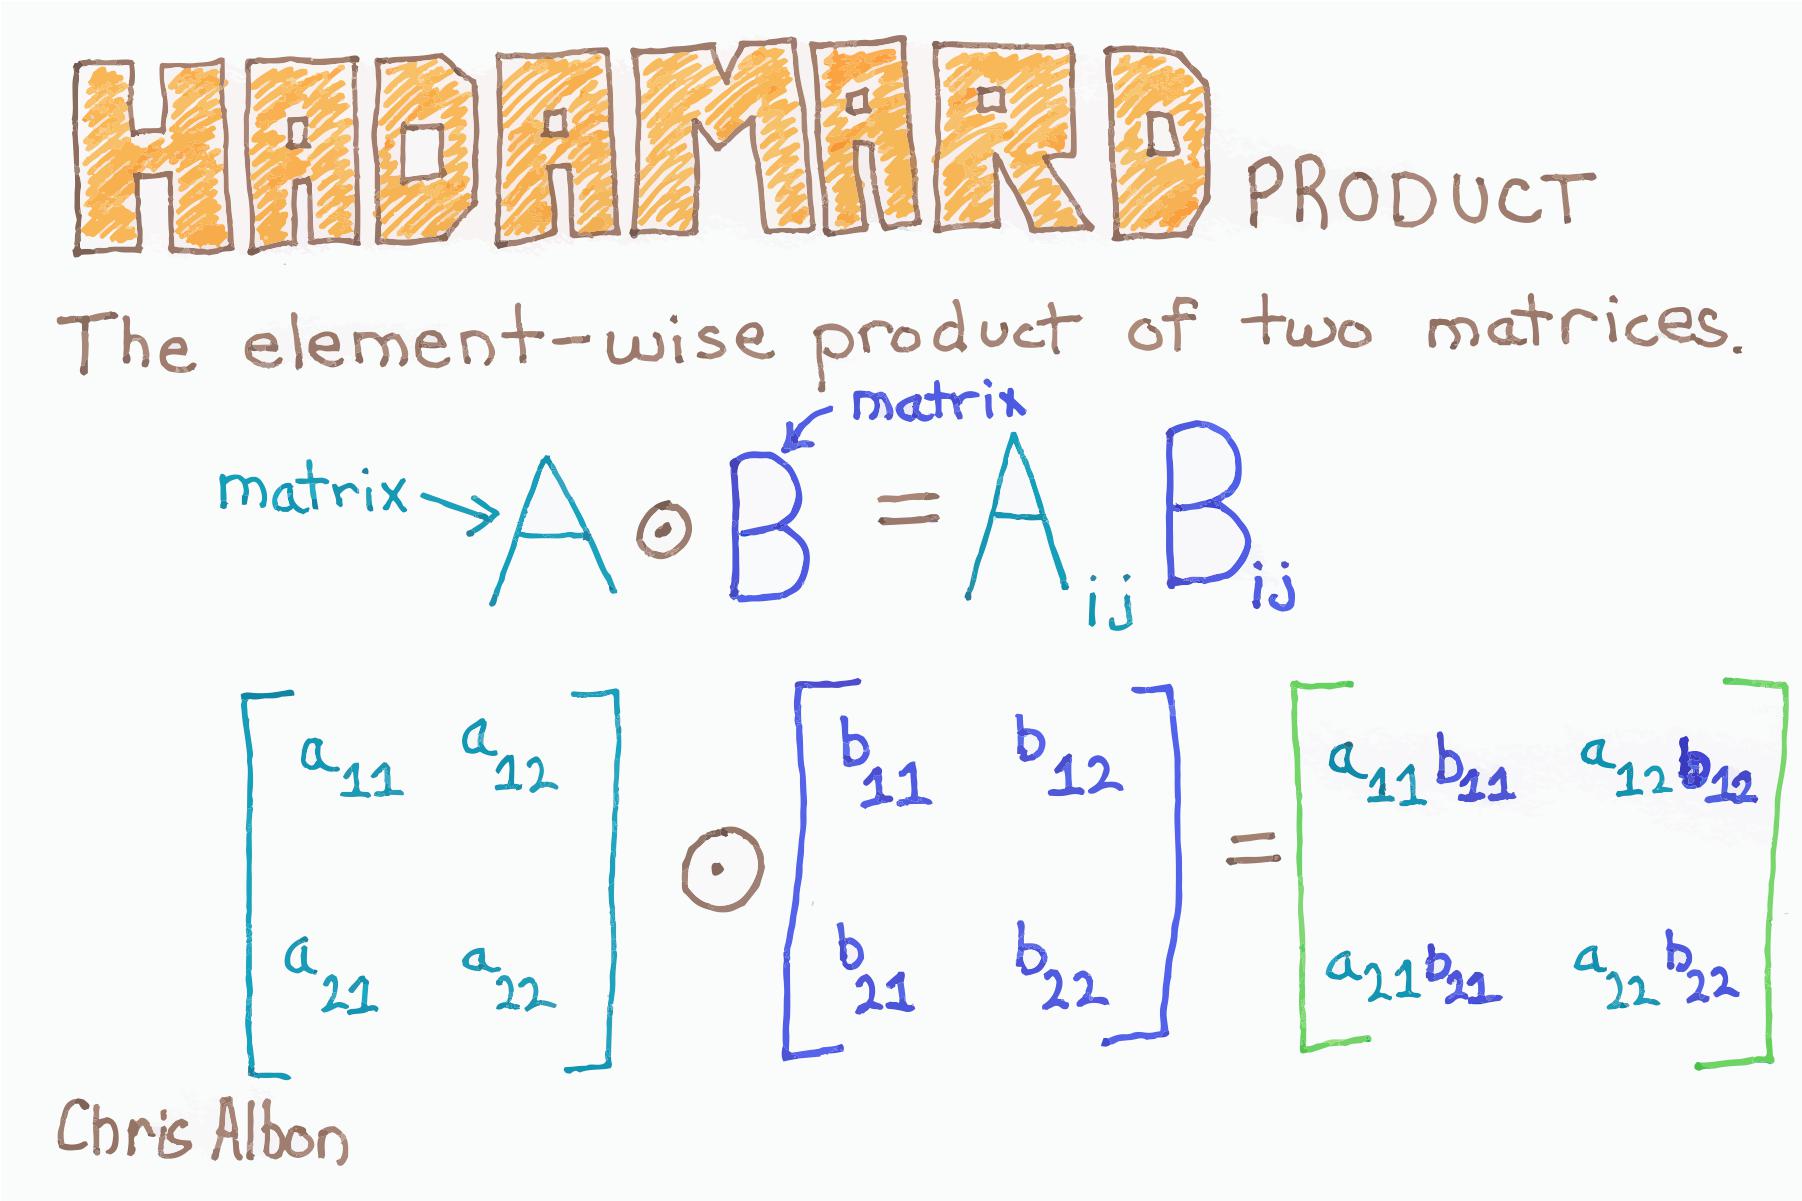 HADAMARD PRODUCT
The element-wise product of two matrices.
matrix
matrix A ⊙ B = A_ij B_ij
[ a_11 a_12 ] ⊙ [ b_11 b_12 ] = [ a_11 b_11 a_12 b_12 ]
[ a_21 a_22 ] [ b_21 b_22 ] [ a_21 b_21 a_22 b_22 ]
Chris Albon